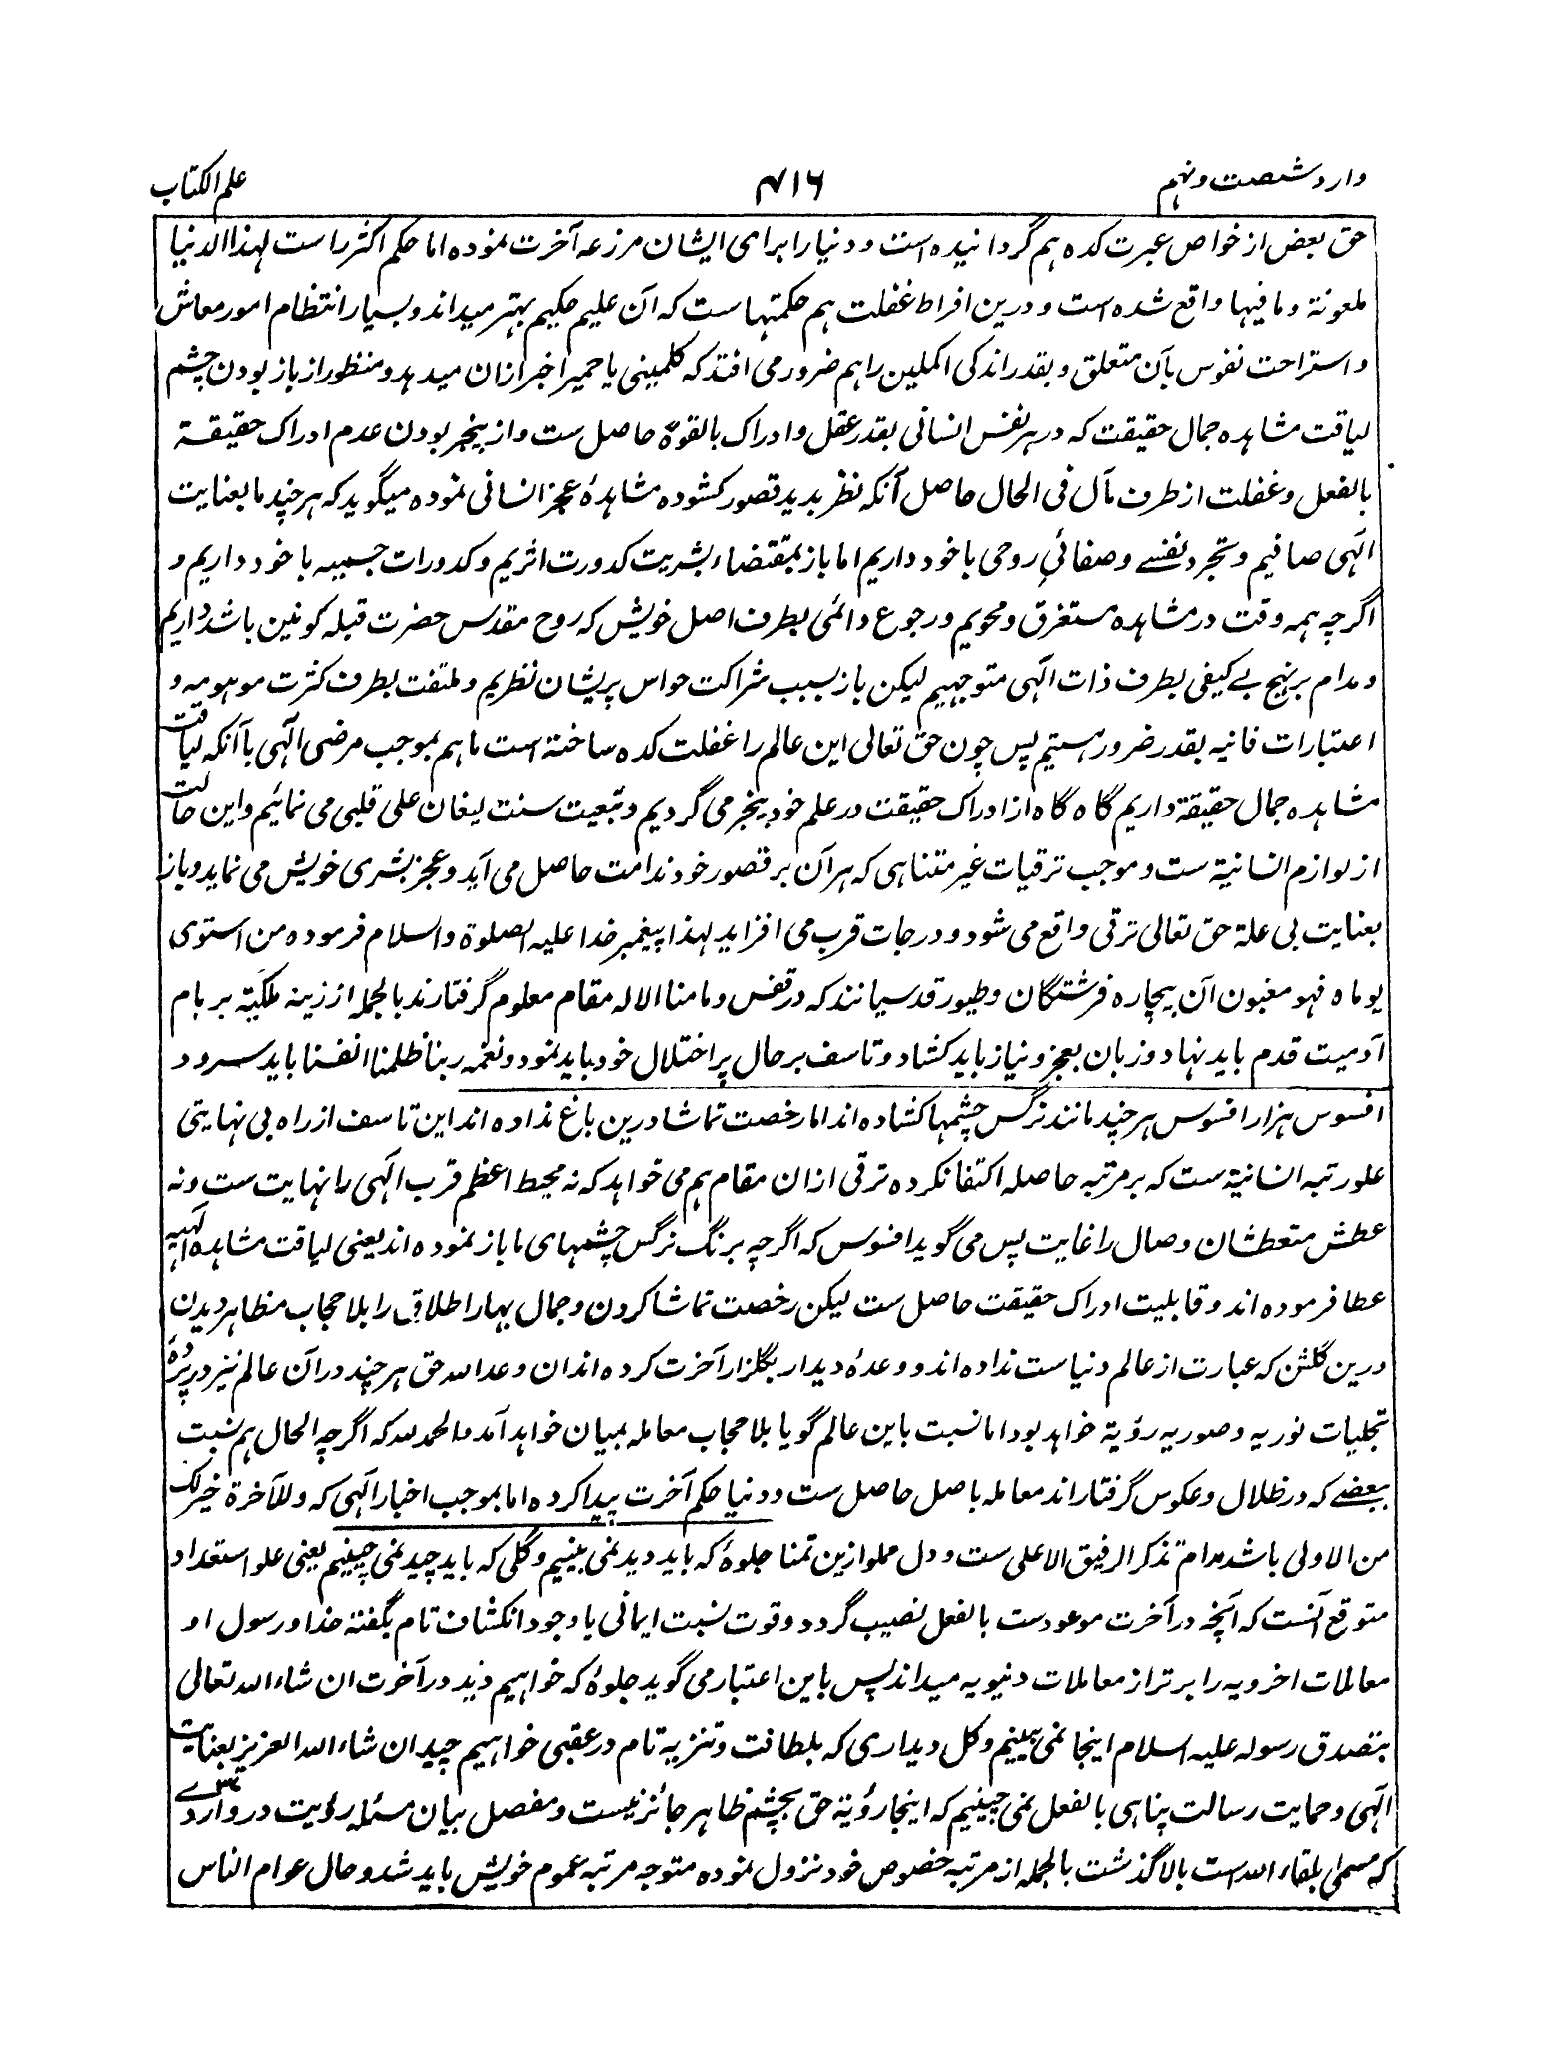 وارد شصت و نهم
۴۱۶
علم الکتاب
حق بعض از خواص عبرت کده هم گردانیده است و دنیا را برای ایشان مزرعه آخرت نموده اما حکم اکثر راست لهذا الدنیا
ملعونة و ما فیها واقع شده است و درین افراط غفلت هم حکمتهاست که آن علیم حکیم بهتر میداند و بسیار انتظام امور معاش
و استراحت نفوس بآن متعلق و بقدر اندکی اکملین را هم ضرور می افتد که کلمینی یا حمیرا خبر ازان میدهد و منظور از باز بودن چشم
لیاقت مشاهده جمال حقیقت که در هر نفس انسانی بقدر عقل و ادراک بالقوه حاصل ست و از بیخبر بودن عدم ادراک حقیقة
بالفعل و غفلت از طرف مآل فی الحال حاصل آنکه نظر بدید قصور کشوده مشاهدهٔ عجز انسانی نموده میگوید که هر چند ما بعنایت
الٓهی صافیم و تجرد نفسے و صفائیِ روحی با خود داریم اما باز بمقتضاء بشریت کدورت اثریم و کدورات جسمیه با خود داریم و
اگرچه همه وقت در مشاهده مستغرق و محویم و رجوع دائمی بطرف اصل خویش که روح مقدس حضرت قبله کونین باشد داریم
و مدام بر نهج بے کیفی بطرف ذات الٓهی متوجهیم لیکن باز بسبب شراکت حواس پریشان نظریم و ملتفت بطرف کثرت موهومه و
اعتبارات فانیه بقدر ضرور هستیم پس چون حق تعالی این عالم را غفلت کده ساخته است ما هم بموجب مرضی الٓهی با آنکه لیاقت
مشاهده جمال حقیقة داریم گاه گاه از ادراک حقیقت در علم خود بیخبر می گردیم و تبعیت سنت لیغان علی قلبی می نمائیم و این حالت
از لوازم انسانیة ست و موجب ترقیات غیر متناهی که هر آن بر قصور خود ندامت حاصل می آید و عجز بشری خویش می نماید و باز
بعنایت بی علة حق تعالی ترقی واقع می شود و درجات قرب می افزاید لهذا پیغمبر خدا علیه الصلوة والسلام فرموده من استوی
یوماه فهو مغبون آن بیچاره فرشتگان و طیور قدسیانند که در قفس و ما منا الا له مقام معلوم گرفتارند بالجمله از زینه ملکیّة بر بام
آدمیت قدم باید نهاد و زبان بعجز و نیاز باید کشاد و تاسف بر حال پر اختلال خود باید نمود و نغمه ربنا ظلمنا انفسنا باید سرود
افسوس هزار افسوس هر چند مانند نرگس چشمها کشاده اند اما رخصت تماشا درین باغ نداده اند این تاسف از راه بی نهایتی
علو رتبه انسانیة ست که بر مرتبه حاصله اکتفا نکرده ترقی ازان مقام هم می خواهد که نه محیط اعظم قرب الٓهی را نهایت ست و نه
عطش متعطشان وصال را غایت پس می گوید افسوس که اگرچه برنگ نرگس چشمهای ما باز نموده اند یعنی لیاقت مشاهده الٓهیه
عطا فرموده اند و قابلیت ادراک حقیقت حاصل ست لیکن رخصت تماشا کردن و جمال بهار اطلاق را بلا حجاب مظاهر دیدن
درین گلشن که عبارت از عالم دنیاست نداده اند و وعدهٔ دیدار بگلزار آخرت کرده اند ان وعد الله حق هر چند در آن عالم نیز در پردهٔ
تجلیات نوریه و صوریه رؤیة خواهد بود اما نسبت باین عالم گویا بلا حجاب معامله بمیان خواهد آمد والحمد لله که اگرچه الحال هم نسبت
ببعضے که در ظلال و عکوس گرفتار اند معامله باصل حاصل ست و دنیا حکم آخرت پیدا کرده اما بموجب اخبار الٓهی که وللآخرة خیر لک
من الاولی باشد مدام تذکر الرفیق الاعلی ست و دل مملو ازین تمنا جلوهٔ که باید دید نمی بینیم و گلی که باید چید نمی چینیم یعنی علو استعداد
متوقع آنست که آنچه در آخرت موعودست بالفعل نصیب گردد و قوت نسبت ایمانی با وجود انکشاف تام بگفته خدا و رسول او
معاملات اخرویه را برتر از معاملات دنیویه میداند پس باین اعتبار می گوید جلوهٔ که خواهیم دید در آخرت ان شاء الله تعالی
بتصدق رسوله علیه السلام اینجا نمی بینیم و گل دیداری که بلطافت و تنزیه تام در عقبی خواهیم چید ان شاء الله العزیز بعنایت
الٓهی و حمایت رسالت پناهی بالفعل نمی چینیم که اینجا رؤیة حق بچشم ظاهر جائز نیست و مفصل بیان مسئله رؤیت در واردے
که مسمیٰ بلقاء الله است بالا گذشت بالجمله از مرتبه خصوص خود نزول نموده متوجه مرتبه عموم خویش باید شد و حال عوام الناس